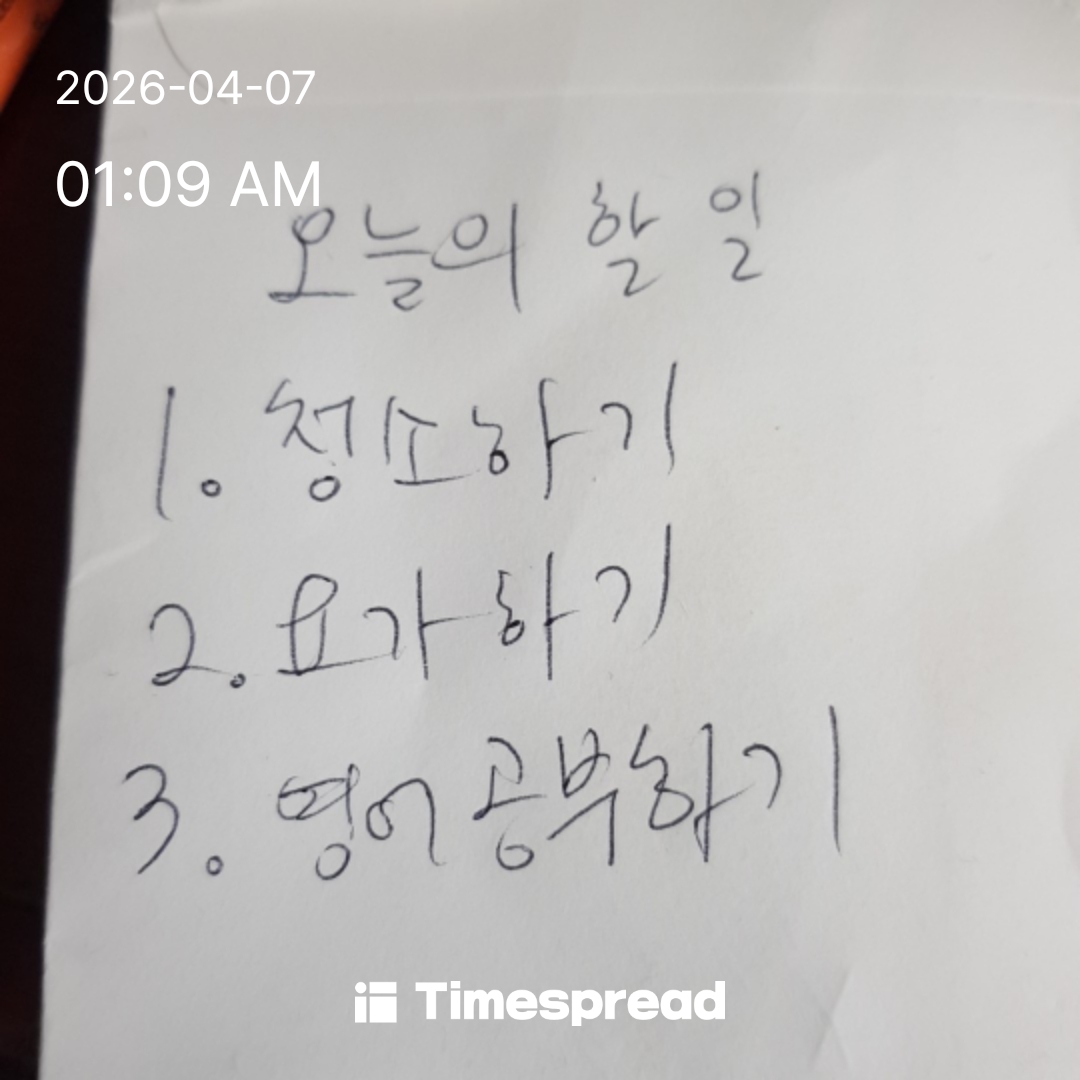 2026-04-07
01:09 AM
오늘의 할 일
1. 청소하기
2. 요가하기
3. 영어공부하기
Timespread